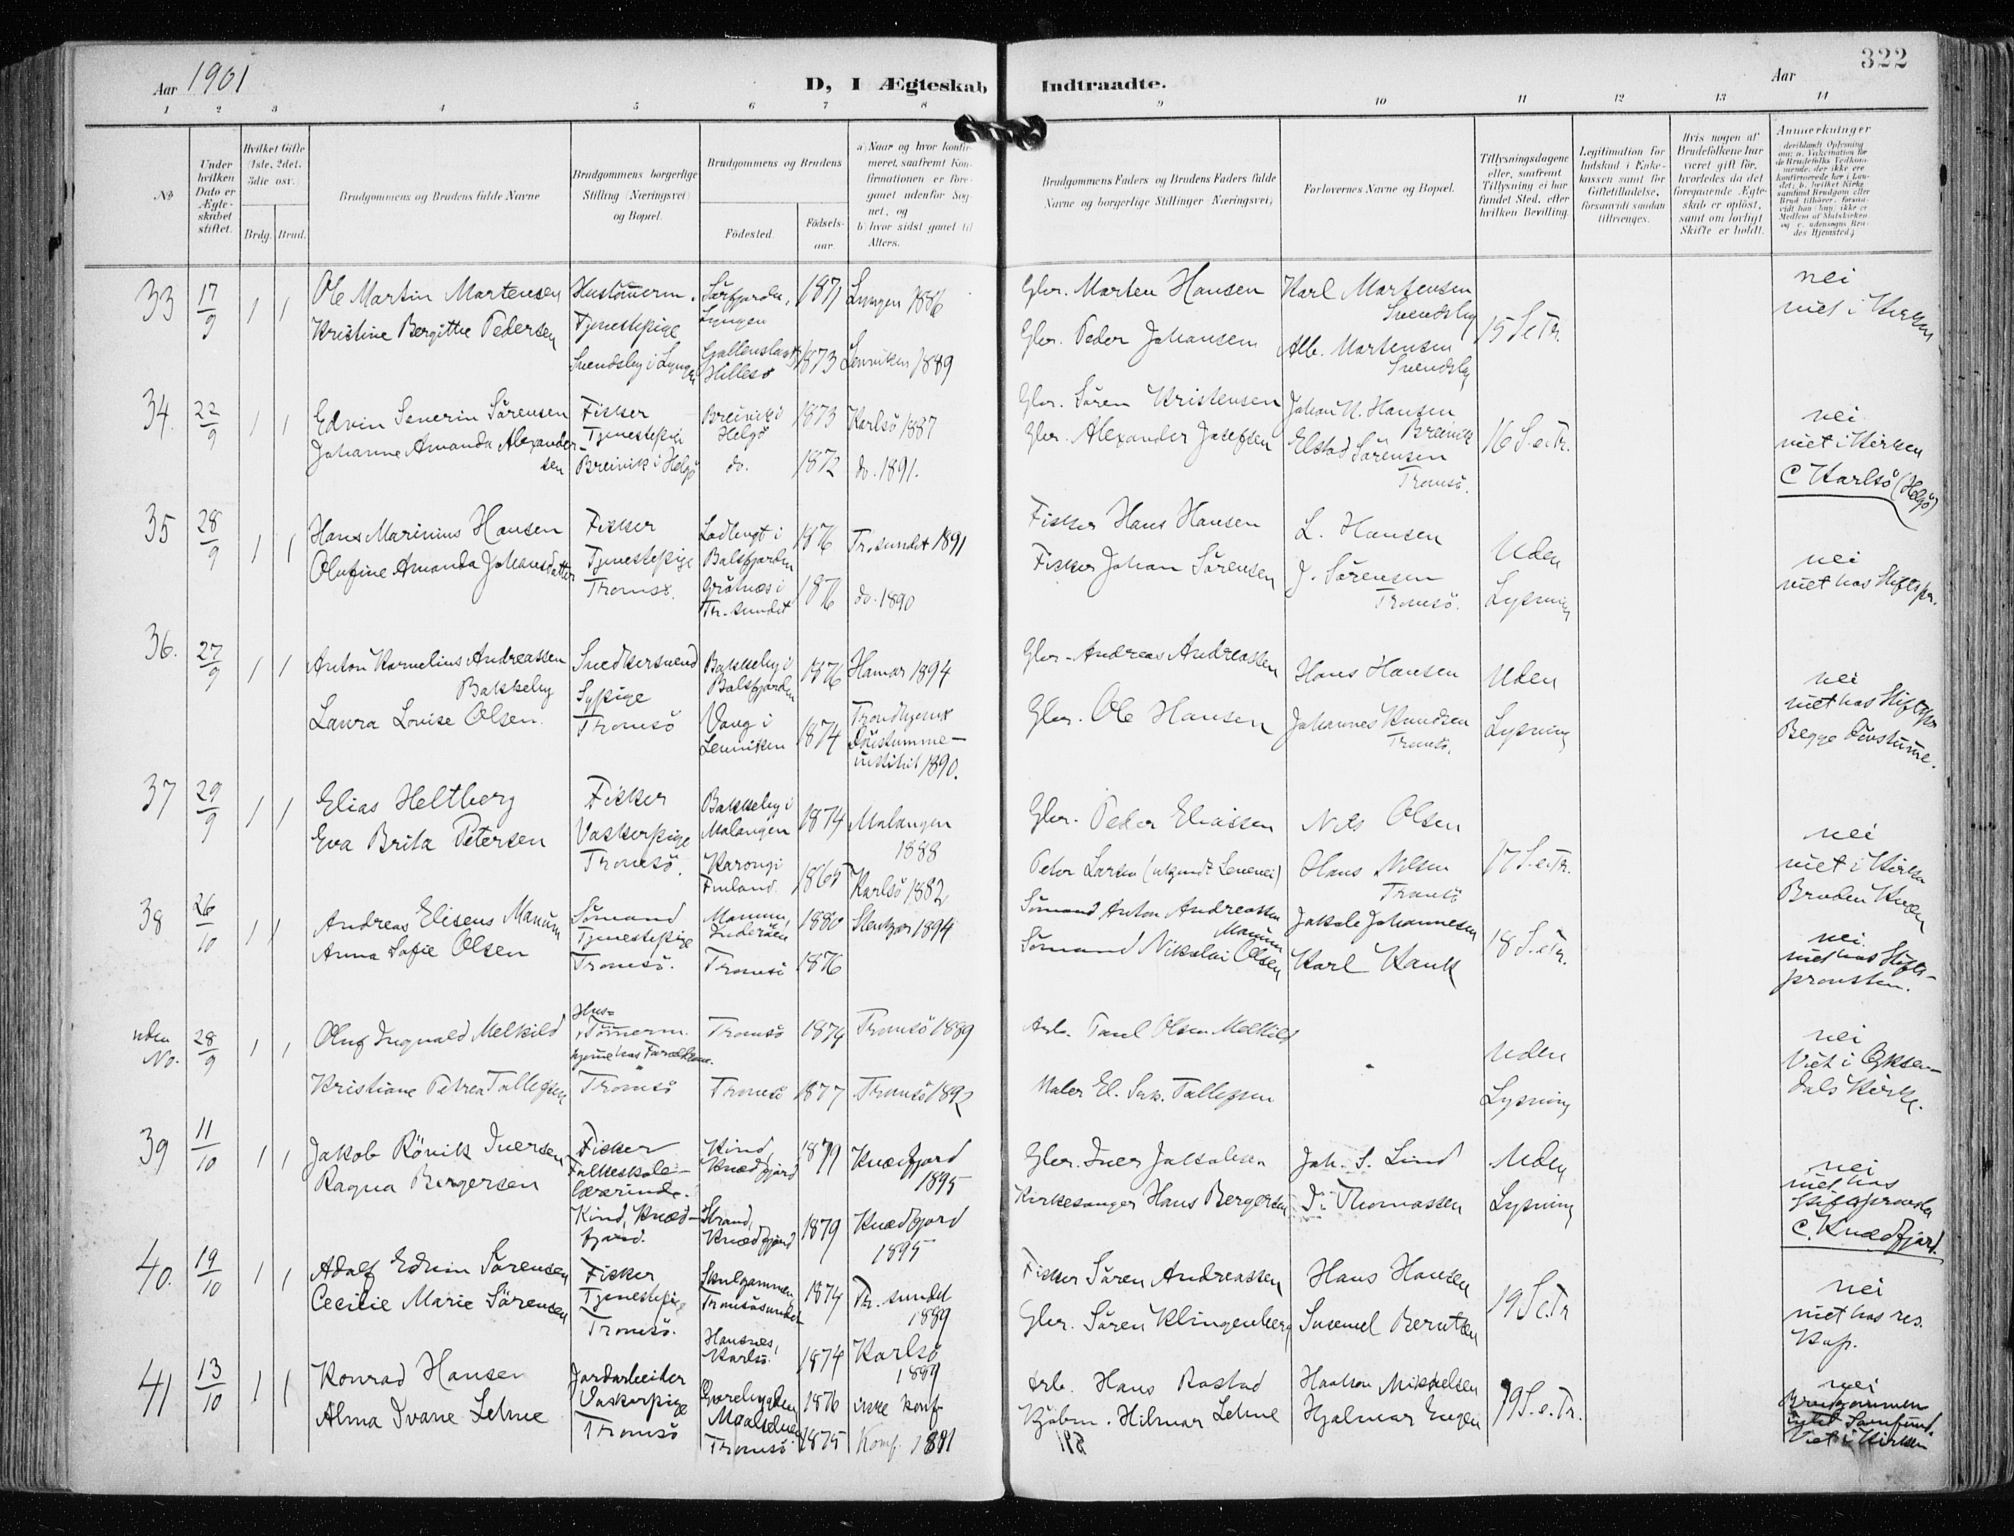 322
Aar 1901
D, I Ægteskab Indtraadte.
Aar
1 2 3 4 5 6 7 8 9 10 11 12 13 14
No
Under hvilken Dato er Ægteskabet stiftet.
Hvilket Gifte (1ste, 2det, 3die osv.
Brdg. Brud.
Brudgommens og Brudens fulde Navne
Brudgommens borgerlige Stilling (Næringsvei) og Bopæl.
Brudgommens og Brudens
Fødested.
Fødselsaar.
a) Naar og hvor konfirmeret, saafremt Konfirmationen er foregaaet udenfor Sognet, og
b) hvor sidst gaaet til Alters.
Brudgommens Faders og Brudens Faders fulde Navne og borgerlige Stillinger (Næringsvei)
Forlovernes Navne og Bopæl.
Tillysningsdagene eller, saafremt Tillysning ei har fundet Sted, efter hvilken Bevilling.
Legitimation for Indskud i Enkekassen samt for Giftetilladelse, forsaavidt saadan tiltrænges.
Hvis nogen af Brudefolkene har været gift før, hvorledes da det foregaaende Ægteskab er opløst, samt om lovligt Skifte er holdt.
Anmerkninger
33 17/9 1 1
Ole Martin Martensen
Kristine Bergitte Pedersen
Hustömerm.
Tjenestepige
Svendsby i Lyngen
Sörfjorden, Lyngen 1871 Lyngen 1886
Hillesö 1873 Lenviken 1889
Gbr. Marten Hansen
Gbr. Peder Johansen
Karl Martensen Svendsby
Alb. Martensen Svendsby
15 S e Tr.
nei
viet i Kirken
34. 22/9 1 1
Edvin Severin Sörensen
Johanne Amanda Alexandersen
Fisker
Tjenestepige
Breivik i Helgö
Breivik i Helgö 1873 Karlsö 1887
do. 1872 do. 1891.
Gbr. Sören Kristensen
Gbr. Alexander Josefsen
Johan N. Hansen Breivik
Elstad Sörensen Tromsö.
16 S. e. Tr.
nei
viet i Kirken
C Karlsö (Helgö)
35 28/9 1 1
Hans Marinius Hansen
Olufine Amanda Johansdatter
Fisker
Tjenestepige
Tromsö.
Balsfjorden 1876 Tr.sundet 1891
Grötnæs i Tr.sundet 1876 do. 1890
Fisker Hans Hansen
Fisker Johan Sörensen
L. Hansen
J. Sörensen
Tromsö.
Uden Lysning
nei
viet hos Stiftspr.
36. 27/9 1 1
Anton Kornelius Andreassen Bakkeby
Laura Lovise Olsen.
Snedkersvend
Sypige
Tromsö
Bakkeby i Balsfjorden 1876 Hamar 1894
Vang i Lenviken 1874 Trondhjems Dövstummeinstitut 1890.
Gbr. Andreas Andreassen
Gbr. Ole Hansen
Hans Hansen
Johannes Knudsen
Tromsö.
Uden Lysning
nei
viet hos Stiftspr
Begge Dövstumme.
37 29/9 1 1
Elias Heltberg
Eva Brita Petersen
Fisker
Vaskerpige
Tromsö.
Bakkeby i Malangen 1874 Malangen 1888
Karongi Finland. 1865 Karlsö 1882
Gbr. Peder Eliassen
Peter Larsen
Nils Olsen
Hans Nilsen
Tromsö
17 S. e. Tr.
nei
viet i Kirken
Bruden Kvæn
38 26/10 1 1
Andreas Elisens Manum
Anna Sofie Olsen
Sömand
Tjenestepige
Tromsö.
Manum, Inderöen 1880 1894
Tromsö 1876
Sömand Anton Andreassen Manum
Sömand Nikolai Olsen
Jakob Johannesen
Karl Hauk
18 S. e Tr.
nei
viet hos Stiftsprovsten.
uden No. 28/9 1 1
Oluf Ingvald Melkild
Kristiane Petrea Tallefsen
Hustömerm.
hjemme hos Forældrene.
Tromsö
Tromsö 1874 Tromsö 1889
Tromsö 1877 Tromsö 1892
Arb. Paul Olsen Melkild
Maler El. Sak. Tallefsen
Uden Lysning
nei
Viet i Öksendals Kirke.
39 11/10 1 1
Jakob Rövik Iversen
Ragna Bergersen
Fisker
Folkeskolelærerinde.
Kind, Kvædfjord.
Kind, Kvædfjord 1879 Kvædfjord 1895
Strand, Kvædfjord 1879 Kvædfjord 1895
Gbr. Iver Jakobsen
Kirkesanger Hans Bergersen
Joh. S. Lind
D. Thomassen
Uden Lysning
nei
viet hos Stiftsprovsten
C. Kvædfjord.
40. 19/10 1 1
Adolf Edvin Sörensen
Cecilie Marie Sörensen
Fisker
Tjenestepige
Tromsö.
Skulgammen Tromsösundet 1874 Tr. sundet 1889
Hansnes, Karlsö. 1874 Karlsö 1889
Fisker Sören Andreassen
Gbr. Sören Klingenberg
Hans Hansen
Samuel Berntsen
19 S e Tr
nei
viet hos res. Kap.
41 13/10 1 1
Konrad Hansen
Alma Ivane Lehne
Jordarbeider
Vaskerpige
Tromsö
Maalselven 1876 ikke konf.
Tromsö. 1875 Konf. 1891
Arb. Hans Rostad
Kjöbm. Hilmar Lehne
Haakon Mikkelsen
Hjalmar Engen
19 S. e. Tr.
nei
Brudgommen
Viet i Kirken